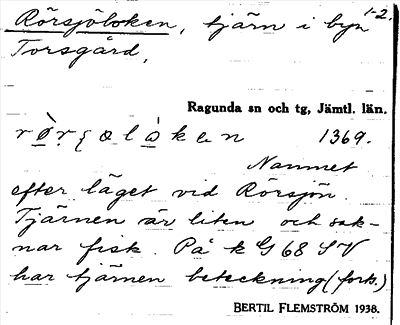 Rörsjöloken, tjärn i byn 1-2.
Torsgård,
Ragunda sn och tg, Jämtl. län.
1369.
Namnet
efter läget vid Rörsjön.
Tjärnen är liten och sak-
nar fisk. På k G 68 SV
har tjärnen beteckning (forts.)
BERTIL FLEMSTRÖM 1938.